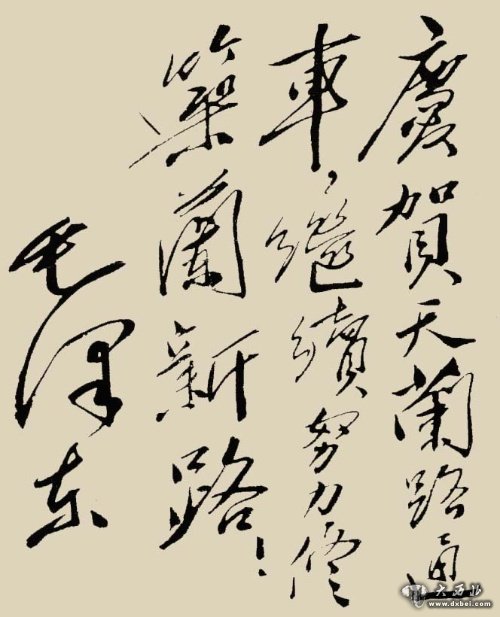 慶賀天蘭路通
車，繼續努力修
築蘭新路！
毛泽东
大西北
www.dxbei.com